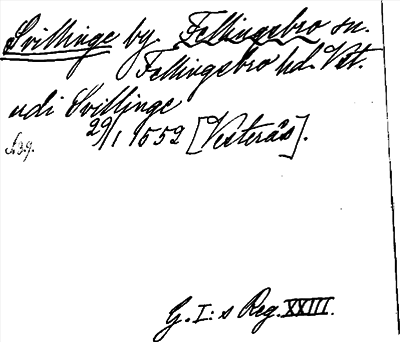 Svillinge by, Fellingsbro sn.
Fellingsbro hd. Vst.
udi Svillinge
29/1 1552 [Vesterås].
G. I:s Reg. XXIII.